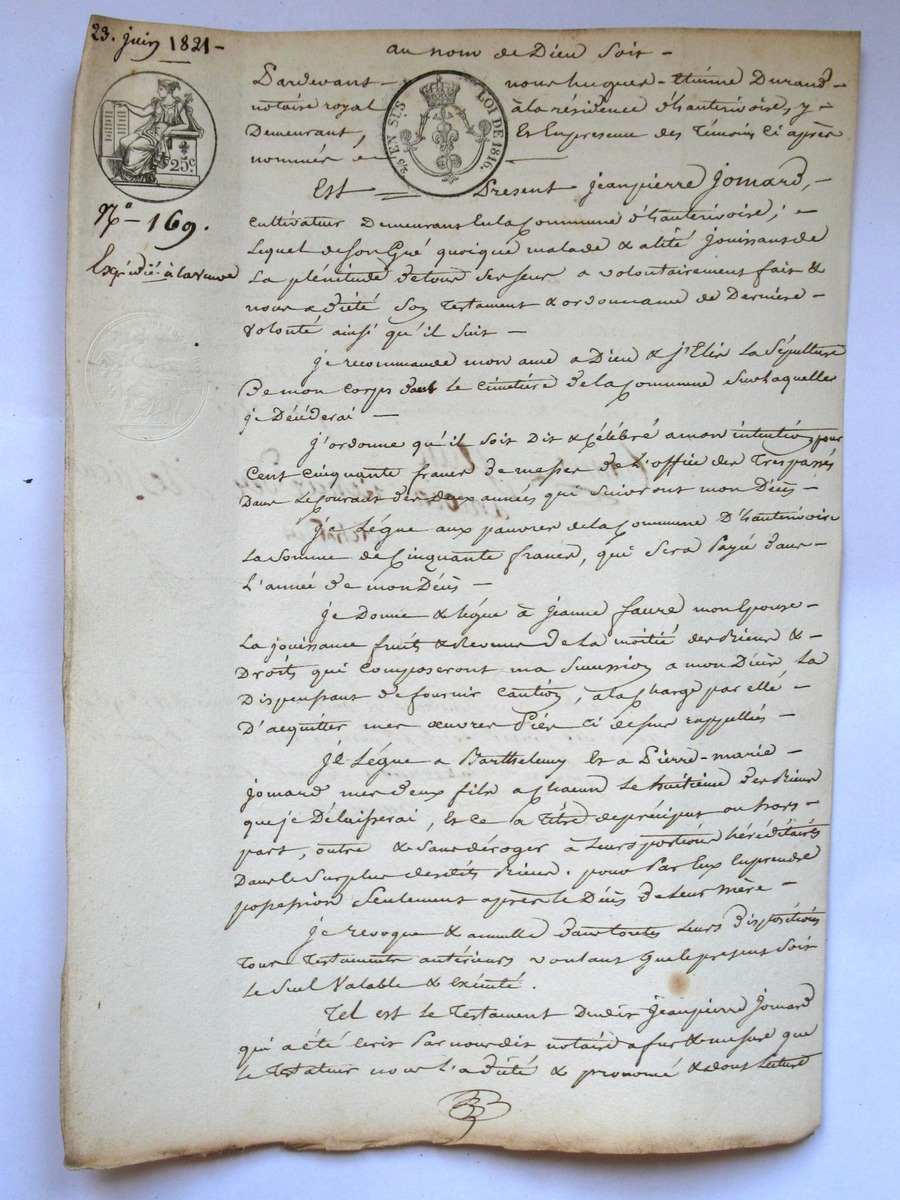 23. juin 1821 -
au nom de Dieu soit -
Pardevant - nous hugues - Etienne Durand -
notaire royal à la résidence d'hauterivoire, y -
Demeurant, Et En presence des Témoins Ci après
nommés
25 EN SUS
LOI DE 1816.
25 c
N° - 169.
Expédié à la veuve
Est Présent jeanpierre jomard, -
Cultivateur Demeurant En la Commune d'hauterivoire, -
Lequel de son Gré quoique malade & alité jouissant de
La plénitude de tous ses sens a volontairement fait &
nous a dicté son Testament & ordonnance de Dernière -
Volonté ainsi qu'il suit -
je recommande mon ame a Dieu & j'Elis La Sépulture
De mon corps dans Le cimetière de la Commune Sur laquelle
je Décéderai -
j'ordonne qu'il soit Dit & Célébré a mon intention pour
Cent cinquante francs de messes de L'office des Trespassés
Dans Le courant des deux années qui suivront mon Décès -
je Légue aux pauvres de la Commune D'hauterivoire
La somme de Cinquante francs, qui sera Payée dans -
L'année de mon Décès -
je Donne & légue à jeanne faure mon Epouse -
La jouissance fruits & Revenus de La moitié des Biens & -
Droits qui composeront ma Succession a mon Décès, La
Dispensant de fournir Caution, à la Charge par elle -
D'acquitter mes œuvres Pies Ci dessus rappellés -
je Légue a Barthelemy Et a Pierre-marie -
jomard mes deux fils a Chacun Le huitième des Biens
que je Délaisserai, Et ce a Titre de préciput ou hors -
part, outre & sans déroger à Leurs portions héréditaires
Dans Le Surplus desdits Biens. pour Par Eux En prendre
possession Seulement après le Décès de Leur mère -
je revoque & annulle dans toutes Leurs dispositions
Tous Testaments antérieurs voulant que le present soit
Le Seul Valable & Exécuté.
Tel est le Testament Dudit jeanpierre jomard
qui a été Ecrit Par nous dit notaire a fur & mesure que
Le Testateur nous L'a dicté & prononcé & dont Lecture